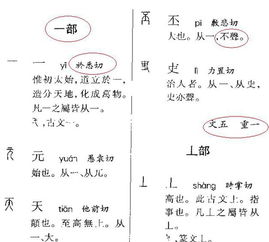 一部
一 yī 於悉切
惟初太始，道立於一，
造分天地，化成萬物。
凡一之屬皆从一。
弌，古文一。
元 yuán 愚袁切
始也。从一、从兀。
天 tiān 他前切
顛也。至高無上。从
一、大。
丕 pī 敷悲切
大也。从一，不聲。
吏 lì 力置切
治人者。从一、从史，
史亦聲。
文五 重一
丄部
丄 shàng 時掌切
高也。此古文上。指
事也。凡丄之屬皆从
丄。
，篆文丄。